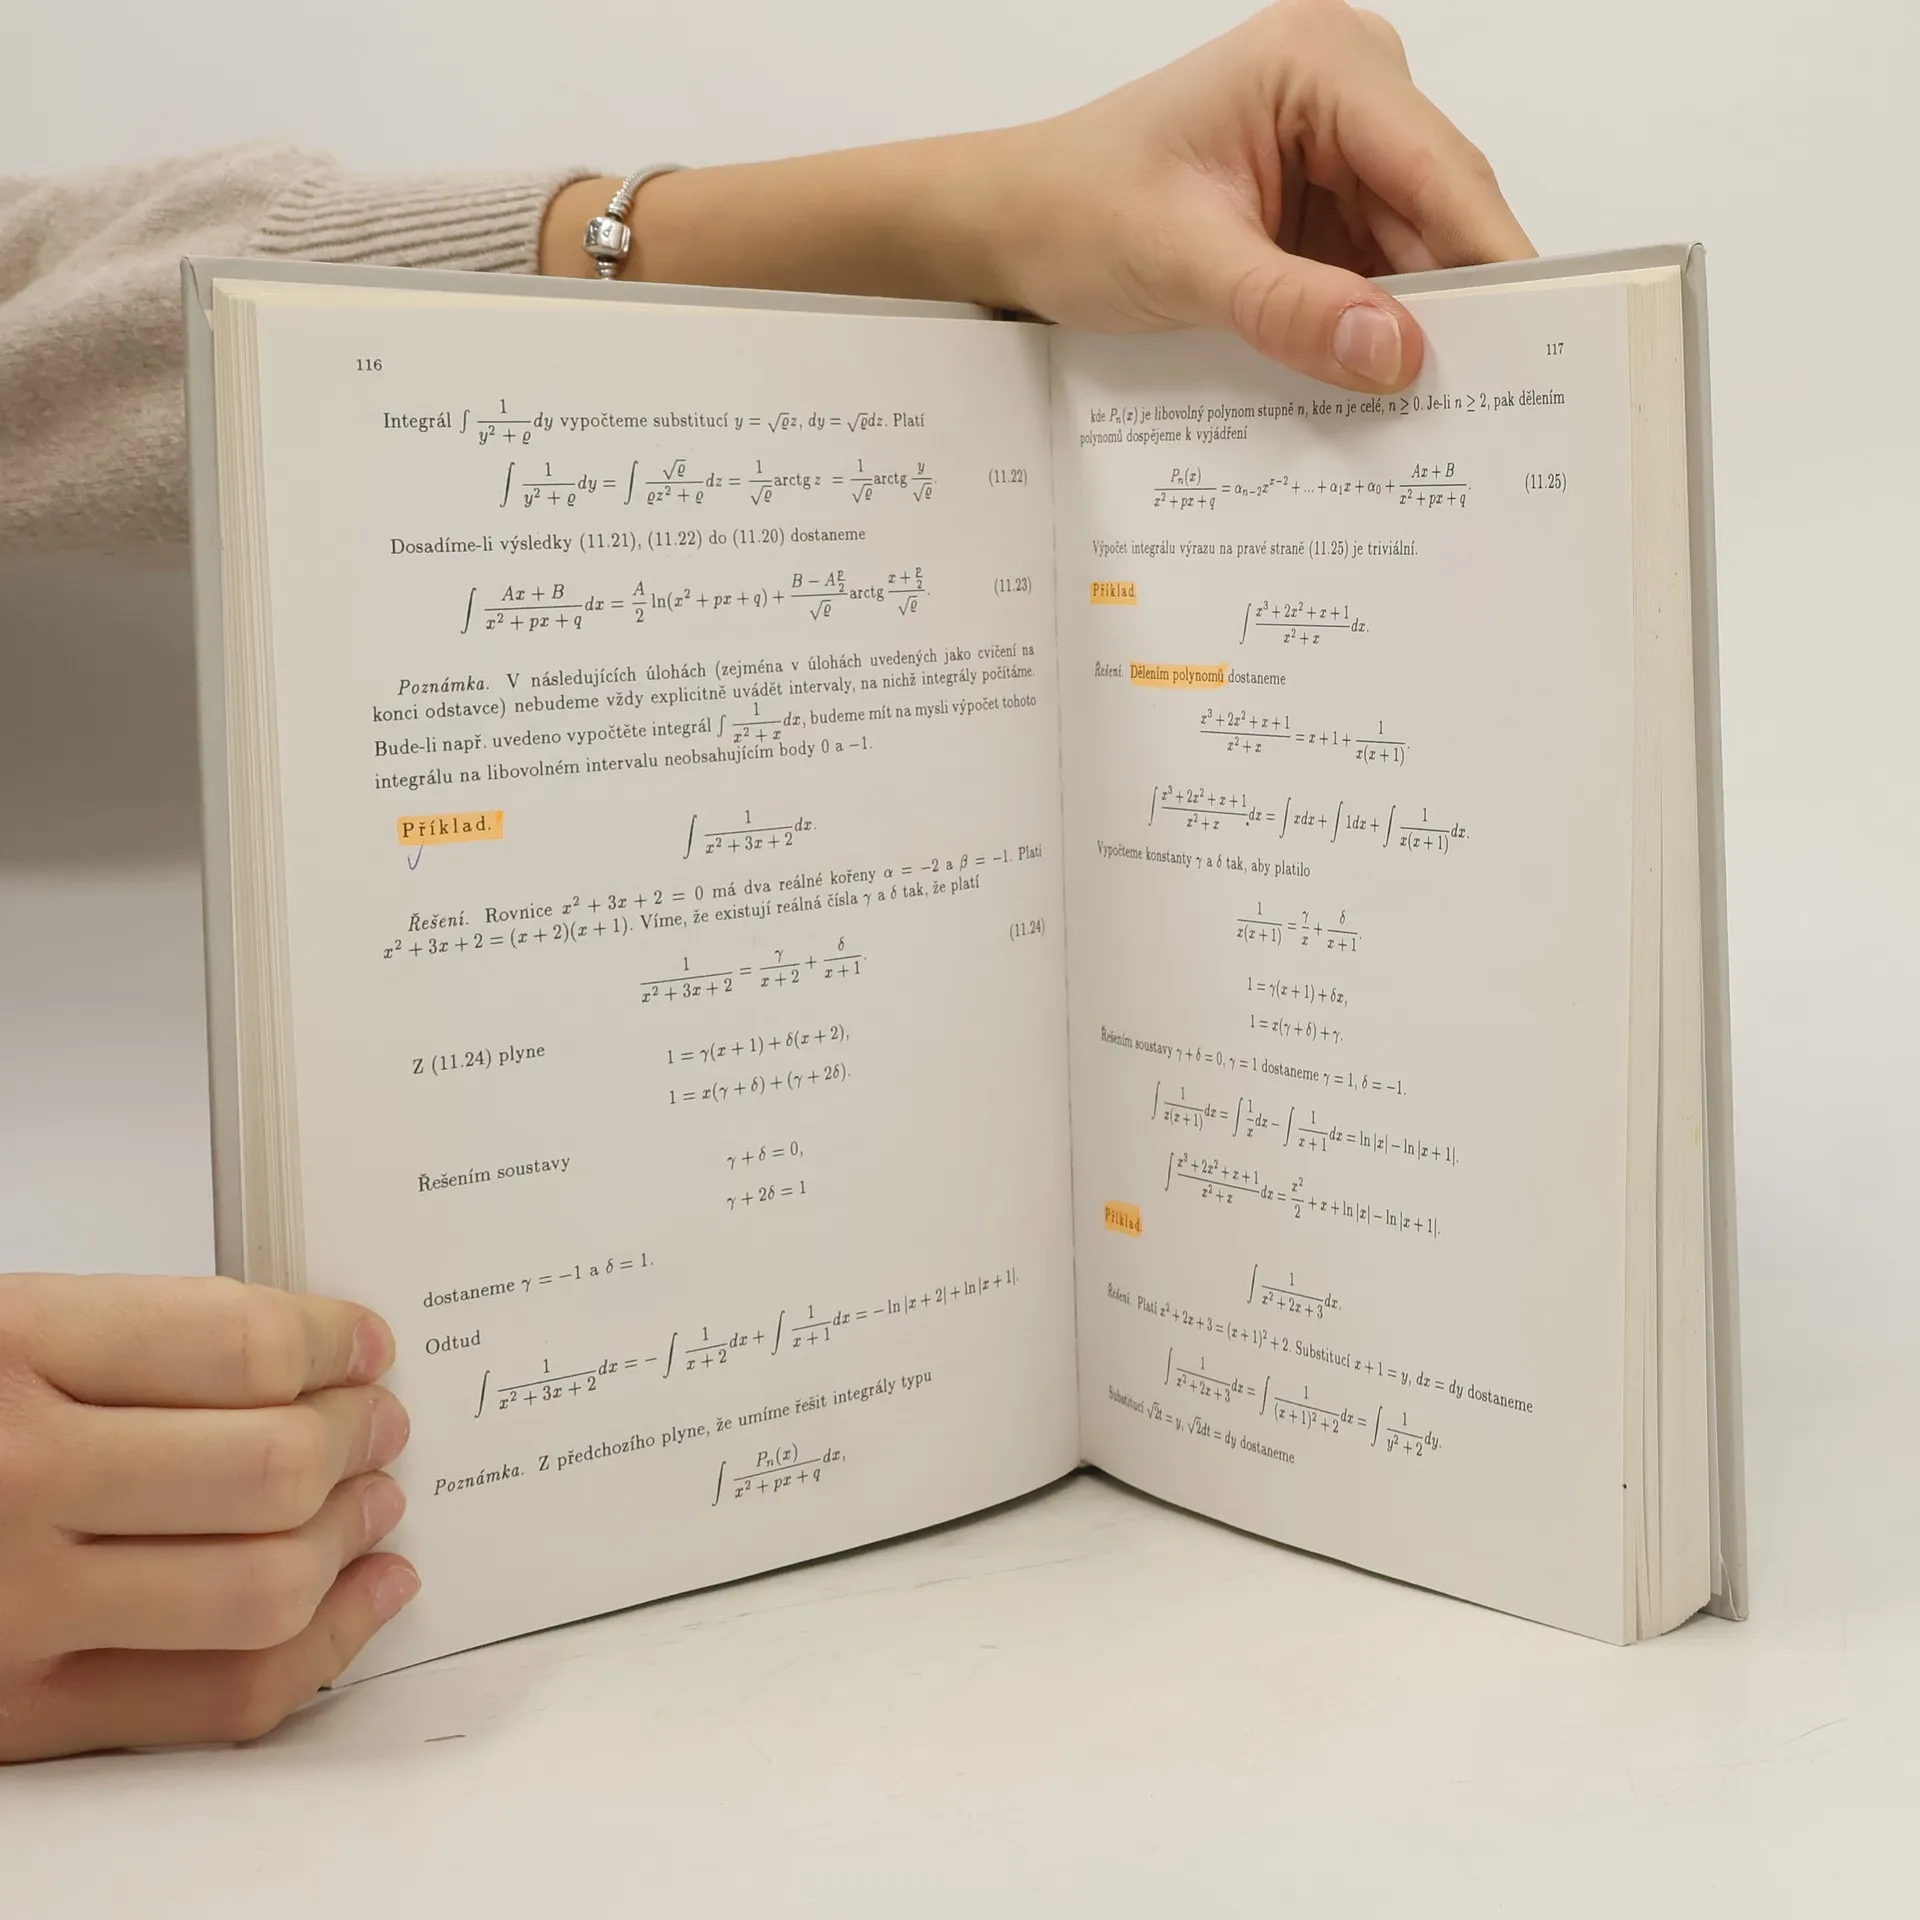 116
Integrál ∫ 1/(y² + ϱ) dy vypočteme substitucí y = √ϱz, dy = √ϱdz. Platí
∫ 1/(y² + ϱ) dy = ∫ √ϱ/(ϱz² + ϱ) dz = 1/√ϱ arctg z = 1/√ϱ arctg y/√ϱ. (11.22)
Dosadíme-li výsledky (11.21), (11.22) do (11.20) dostaneme
∫ (Ax + B)/(x² + px + q) dx = A/2 ln(x² + px + q) + (B − A p/2)/√ϱ arctg (x + p/2)/√ϱ. (11.23)
Poznámka. V následujících úlohách (zejména v úlohách uvedených jako cvičení na
konci odstavce) nebudeme vždy explicitně uvádět intervaly, na nichž integrály počítáme.
Bude-li např. uvedeno vypočtěte integrál ∫ 1/(x² + x) dx, budeme mít na mysli výpočet tohoto
integrálu na libovolném intervalu neobsahujícím body 0 a −1.
Příklad.
∫ 1/(x² + 3x + 2) dx.
Řešení. Rovnice x² + 3x + 2 = 0 má dva reálné kořeny α = −2 a β = −1. Platí
x² + 3x + 2 = (x + 2)(x + 1). Víme, že existují reálná čísla γ a δ tak, že platí
1/(x² + 3x + 2) = γ/(x + 2) + δ/(x + 1). (11.24)
Z (11.24) plyne 1 = γ(x + 1) + δ(x + 2),
1 = x(γ + δ) + (γ + 2δ).
Řešením soustavy γ + δ = 0,
γ + 2δ = 1
dostaneme γ = −1 a δ = 1.
Odtud
∫ 1/(x² + 3x + 2) dx = − ∫ 1/(x + 2) dx + ∫ 1/(x + 1) dx = − ln |x + 2| + ln |x + 1|.
Poznámka. Z předchozího plyne, že umíme řešit integrály typu
∫ Pₙ(x)/(x² + px + q) dx,
117
kde Pₙ(x) je libovolný polynom stupně n, kde n je celé, n ≥ 0. Je-li n ≥ 2, pak dělením
polynomů dospějeme k vyjádření
Pₙ(x)/(x² + px + q) = αₙ₋₂xˣ⁻² + ... + α₁x + α₀ + (Ax + B)/(x² + px + q). (11.25)
Výpočet integrálu výrazu na pravé straně (11.25) je triviální.
Příklad.
∫ (x³ + 2x² + x + 1)/(x² + x) dx.
Řešení. Dělením polynomů dostaneme
(x³ + 2x² + x + 1)/(x² + x) = x + 1 + 1/(x(x + 1)).
∫ (x³ + 2x² + x + 1)/(x² + x) dx = ∫ xdx + ∫ 1dx + ∫ 1/(x(x + 1)) dx.
Vypočteme konstanty γ a δ tak, aby platilo
1/(x(x + 1)) = γ/x + δ/(x + 1).
1 = γ(x + 1) + δx,
1 = x(γ + δ) + γ.
Řešením soustavy γ + δ = 0, γ = 1 dostaneme γ = 1, δ = −1.
∫ 1/(x(x + 1)) dx = ∫ 1/x dx − ∫ 1/(x + 1) dx = ln |x| − ln |x + 1|.
∫ (x³ + 2x² + x + 1)/(x² + x) dx = x²/2 + x + ln |x| − ln |x + 1|.
Příklad.
∫ 1/(x² + 2x + 3) dx.
Řešení. Platí x² + 2x + 3 = (x + 1)² + 2. Substitucí x + 1 = y, dx = dy dostaneme
∫ 1/(x² + 2x + 3) dx = ∫ 1/((x + 1)² + 2) dx = ∫ 1/(y² + 2) dy.
Substitucí √2t = y, √2dt = dy dostaneme